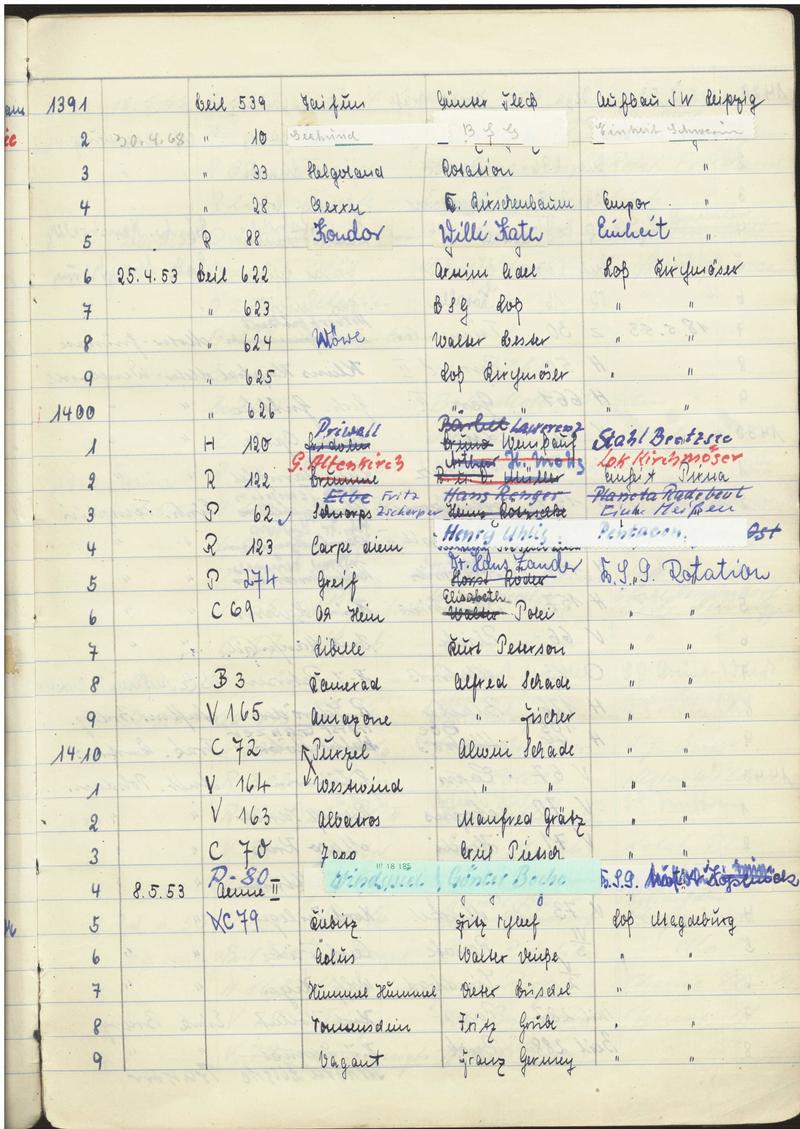 1391 Beil 539 Taifun Günter Fleck Aufbau SW Leipzig
2 30.4.68 " 10 Seehund B S G Einheit Schwerin
3 " 33 Helgoland Rotation "
4 " 28 K. Kirschenbaum Empor "
5 R 88 Kondor Willi Kath Einheit "
6 25.4.53 Beil 622 Armin Edel Lok Kirchmöser
7 " 623 BSG Lok " "
8 " 624 Möwe Walter Bester " "
9 " 625 Lok Kirchmöser " "
1400 " 626 " " " "
Priwall Bärbel Lawerenz
1 H 120 Fridolin Bruno Weinbauf Stahl Beetzsee
G. Altenkirch Arthur H. Moltz Lok Kirchmöser
2 R 122 Brumme Müller Einheit Pirna
Elbe Fritz Hans Renger Planeta Radebeul
3 P 62 Schnorps Zscherper Heinz Einh. Meißen
Henry Uhlig Pentacon Ost
4 R 123 Carpe diem
Dr. Hans Zander
5 P 274 Greif Horst Röder B.S.G. Rotation
Elisabeth
6 C 69 Ol Hein Walter Polei " "
7 Libelle Kurt Peterson " "
8 B 3 Kamerad Alfred Schade " "
9 V 165 Amazone " Fischer " "
1410 C 72 Purzel Alwin Schade " "
1 V 164 Westwind " " " "
2 V 163 Albatros Manfred Grätz " "
3 C 70 Emil Pietsch " "
III 18 185
R-80 Windspiel Günter Boche B.S.G.
4 8.5.53 Aenne II
5 C 79 Kiebitz Fritz Lok Magdeburg
6 Äolus Walter " "
7 Hummel Hummel Dieter Büschel " "
8 Fritz Grube " "
9 Vagant Franz Germey " "